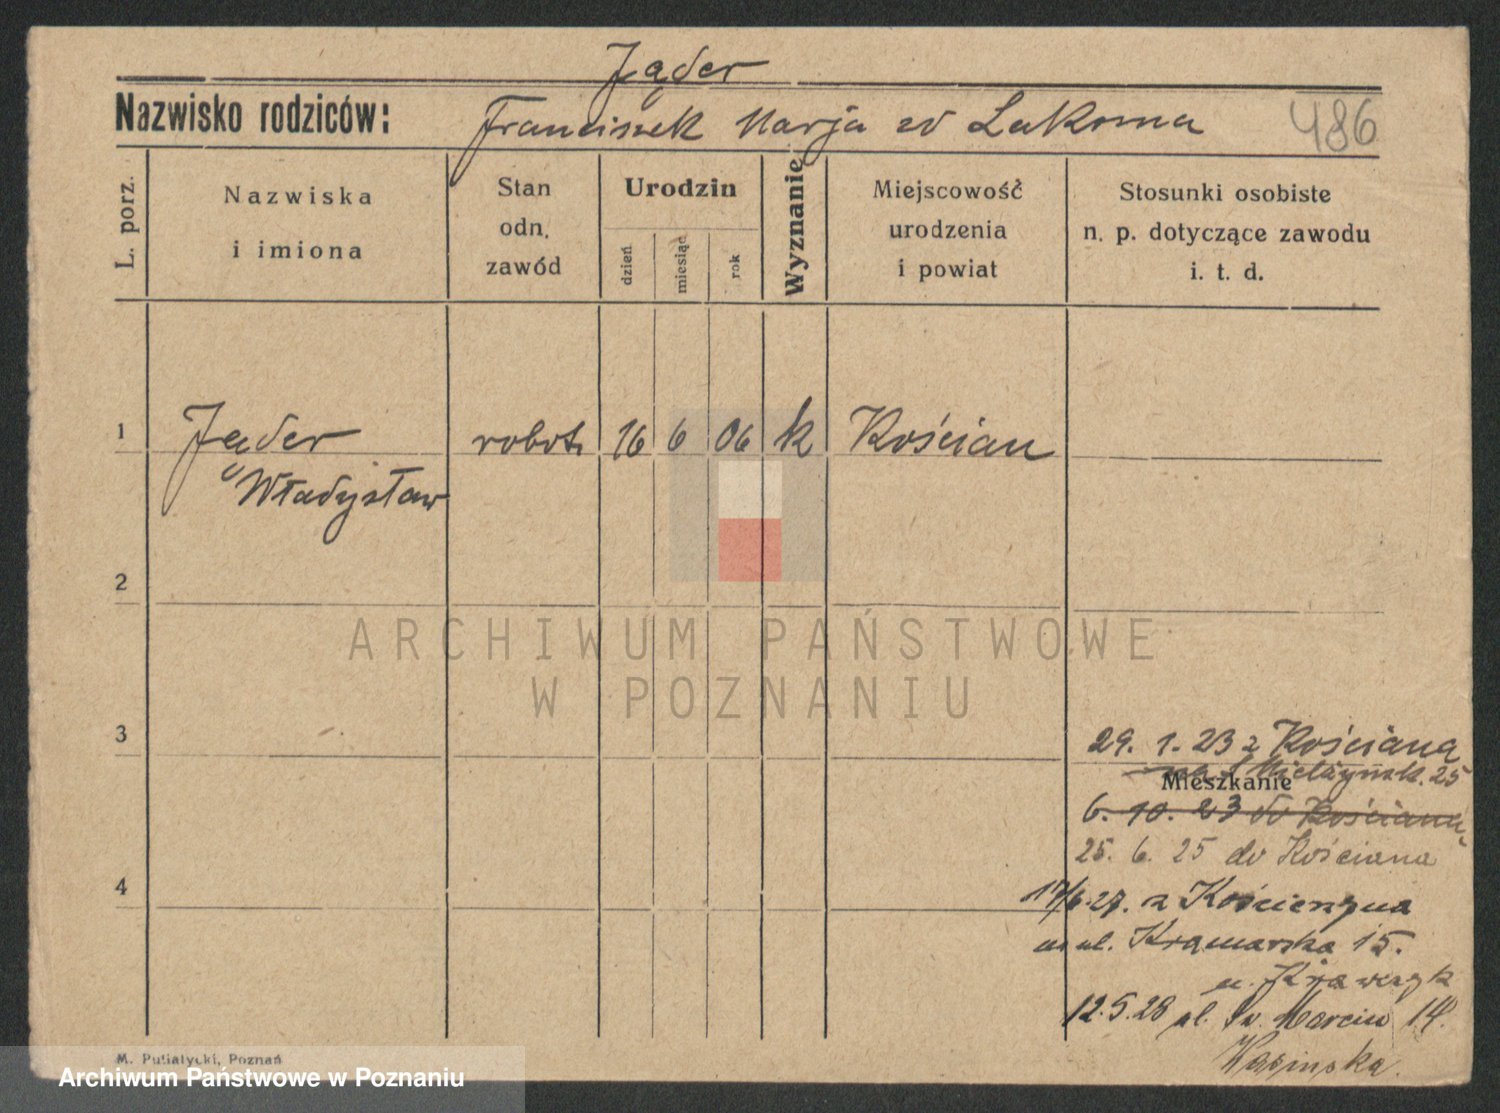 Jąder
Nazwisko rodziców: Franciszek Marja zd Lakoma 486
L. porz.
Nazwiska
i imiona
Stan
odn.
zawód
Urodzin
dzień
miesiąc
rok
Wyznanie
Miejscowość
urodzenia
i powiat
Stosunki osobiste
n. p. dotyczące zawodu
i. t. d.
1 Jąder robot. 16 6 06 k Kościan
Władysław
2
ARCHIWUM PAŃSTWOWE
W POZNANIU
3
29. 1. 23 z Kościana
Mielżyńsk. 25
Mieszkanie
6. 10. 23 do Kościana
25. 6. 25 do Kościana
4
17/6.27. z Kościerzyna
na ul. Kramarska 15.
u. Krawczyk
12.5.28 ul. Św. Marcin 14.
M. Putiatycki, Poznań
Archiwum Państwowe w Poznaniu